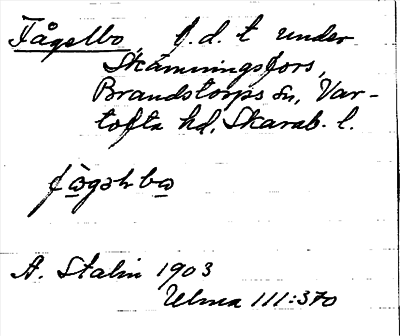 Fågelbo, f.d. t under
Skämningsfors,
Brandstorps sn, Var-
tofta hd, Skarab. l.
fògəlbo
A. Stalin 1903
Ulma 111:370